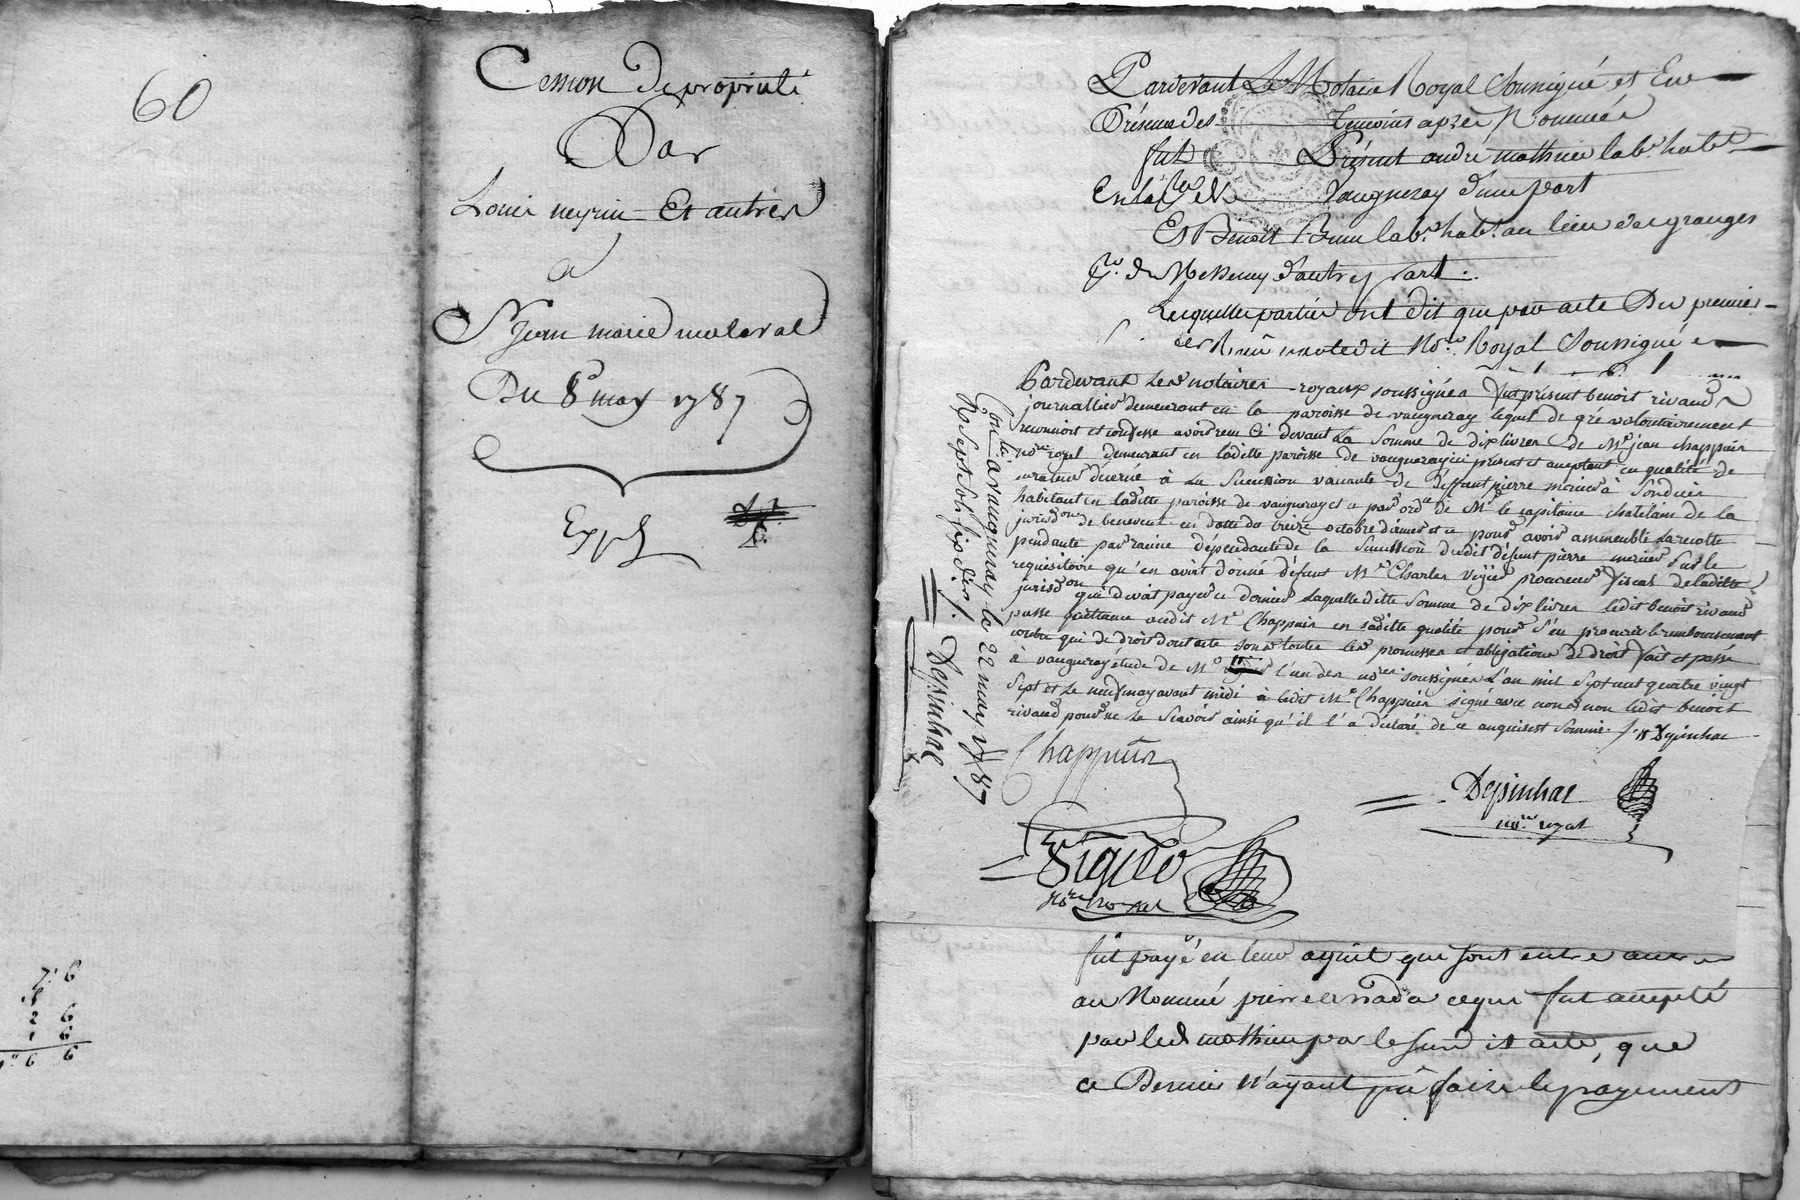 60
7. 6
2 6
1 6
6 6
Cession de propriété
Par
Louis neyrin Et autres
a
Sr Jean marie malaval
Du 8e may 1787
Expé
Pardevant Le Notaire Royal Soussigné et En
Présence des Temoins après Nommés
fut Présent andré mathieu labr. habt.
En la Vaugneray d'une part
Et Benoit labr. habt. au lieu des granges
de Messemy d'autre part.
Lesquelles parties ont dit que par acte Du premier
Notre. Royal Soussigné
Pardevant Les notaires royaux soussignés fut présent benoit rivaud
journallier demeurant en la paroisse de vaugneray lequel de gré volontairement
reconnoit et confesse avoir reçu ci devant La Somme de dix livres De Me jean chappuis
nore royal demeurant en laditte paroisse de vaugneray ici présent et acceptant en qualité de
curateur décerné à La Succession vacante de deffunt pierre
habitant en laditte paroisse de vaugneray et a par ordce de Mr le capitaine chatelain de la
jurisdon de benevent en datte du treize octobre dernier et ce pour avoir ameublé La recolte
pendante par racine dépendante de la Succession dudit défunt pierre Sur le
requisitoire qu'en avoit donné défunt Me Charles procureur fiscal de laditte
jurisdon qui devoit payer ce dernier Laquelle ditte Somme de dix livres ledit benoit rivaud
passe quittance audit Me Chappuis en saditte qualité pour S'en procurer le remboursement
contre qui de droit dont acte sous toutes les promesses et obligations de droit fait et passé
à vaugneray étude de Me l'un des nores soussignés L'an mil Sept cent quatre vingt
Sept et Le neuf may avant midi à ledit Me Chappuis signé avec nous non ledit benoit
rivaud pour ne le Scavoir ainsi qu'il l'a déclaré de ce enquis et Sommé.
Chappuis
Depinhac
nore royal
nore royal
Conlé a vaugneray le 22 may 1787
Rp Sept Sols Six ders.
Depinhac
fut payé en leur acquit que sont entre autres
au Nommé pierre ce qui fut accepté
par led mathieu par le Susd it acte, que
ce Dernier N'ayant pu faire le payement